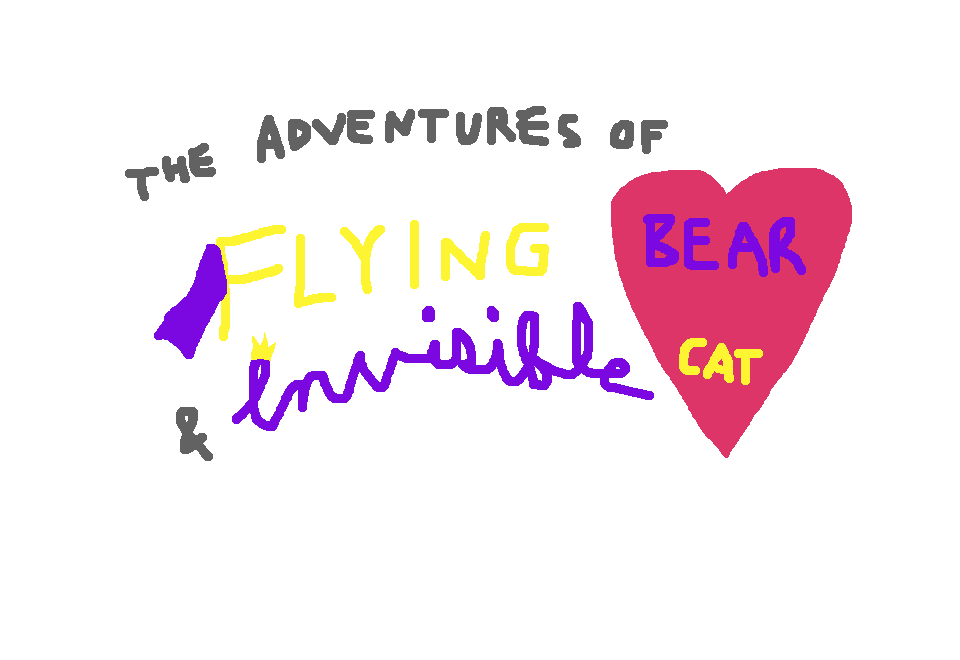 THE ADVENTURES OF
FLYING BEAR
& Invisible CAT